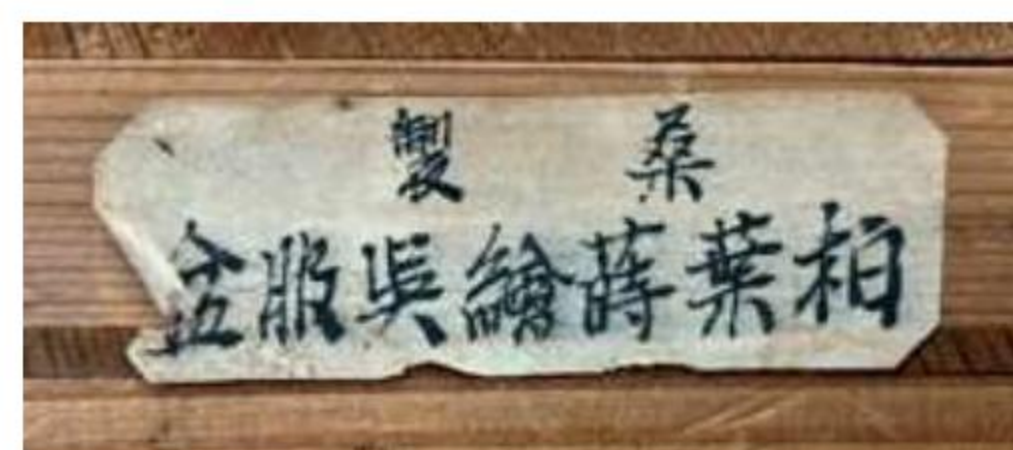 桑製
柏葉蒔繪呉服盆